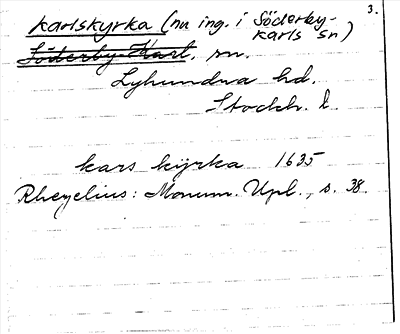 3.
Karlskyrka (nu ing. i Söderby-
Karls sn)
Söderby-Karl, sn.
Lyhundra hd.
Stockh. l.
kars kijrka 1635
Rhezelius: Monum. Upl., s. 38.